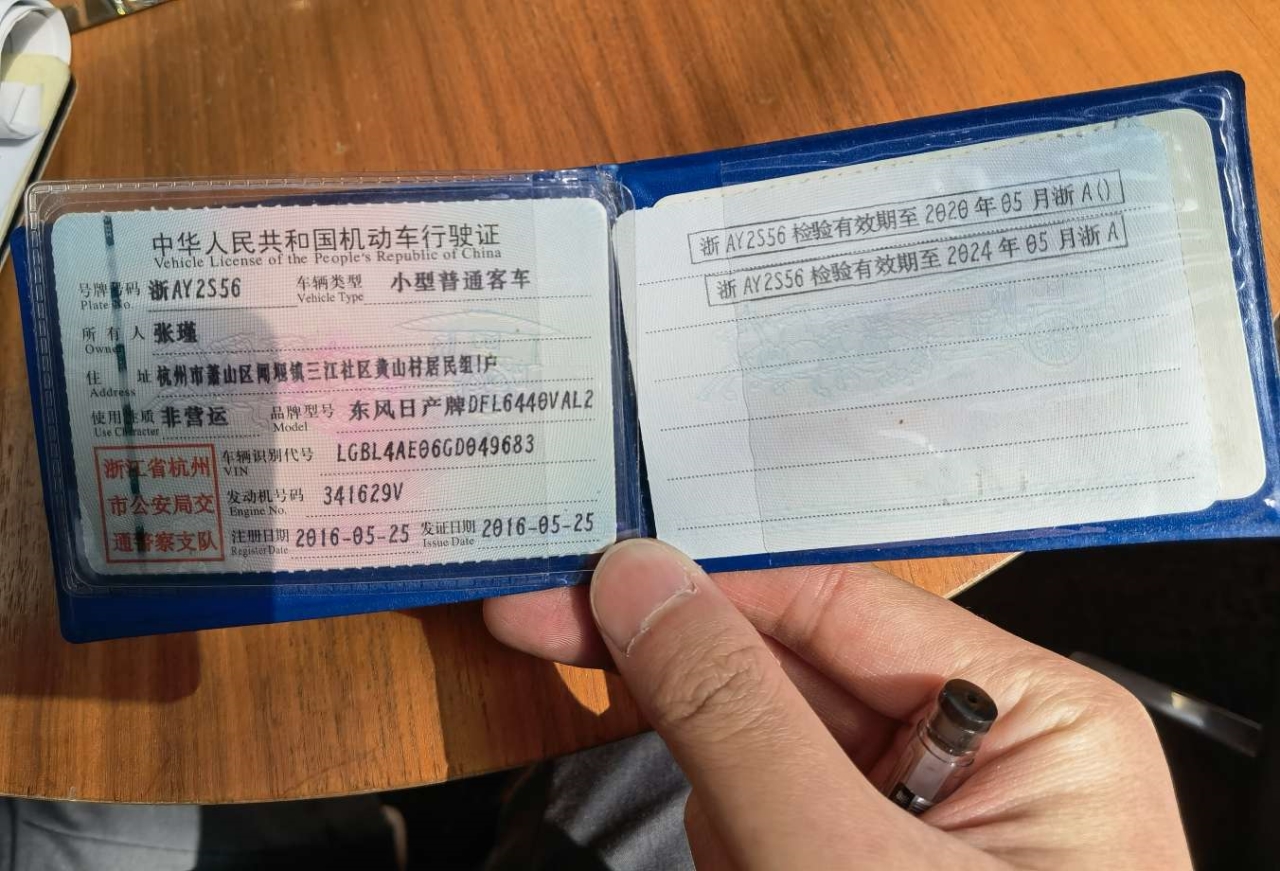 中华人民共和国机动车行驶证
Vehicle License of the People's Republic of China
号牌号码 浙AY2S56 车辆类型 小型普通客车
Plate No. Vehicle Type
所有人 张瑾
Owner
住址 杭州市萧山区闻堰镇三江社区黄山村居民组1户
Address
使用性质 非营运 品牌型号 东风日产牌DFL6440VAL2
Use Character Model
车辆识别代号 LGBL4AE06GD049683
VIN
发动机号码 341629V
Engine No.
注册日期 2016-05-25 发证日期 2016-05-25
Register Date Issue Date
浙江省杭州
市公安局交
通警察支队
浙AY2S56检验有效期至2020年05月浙A()
浙AY2S56检验有效期至2024年05月浙A